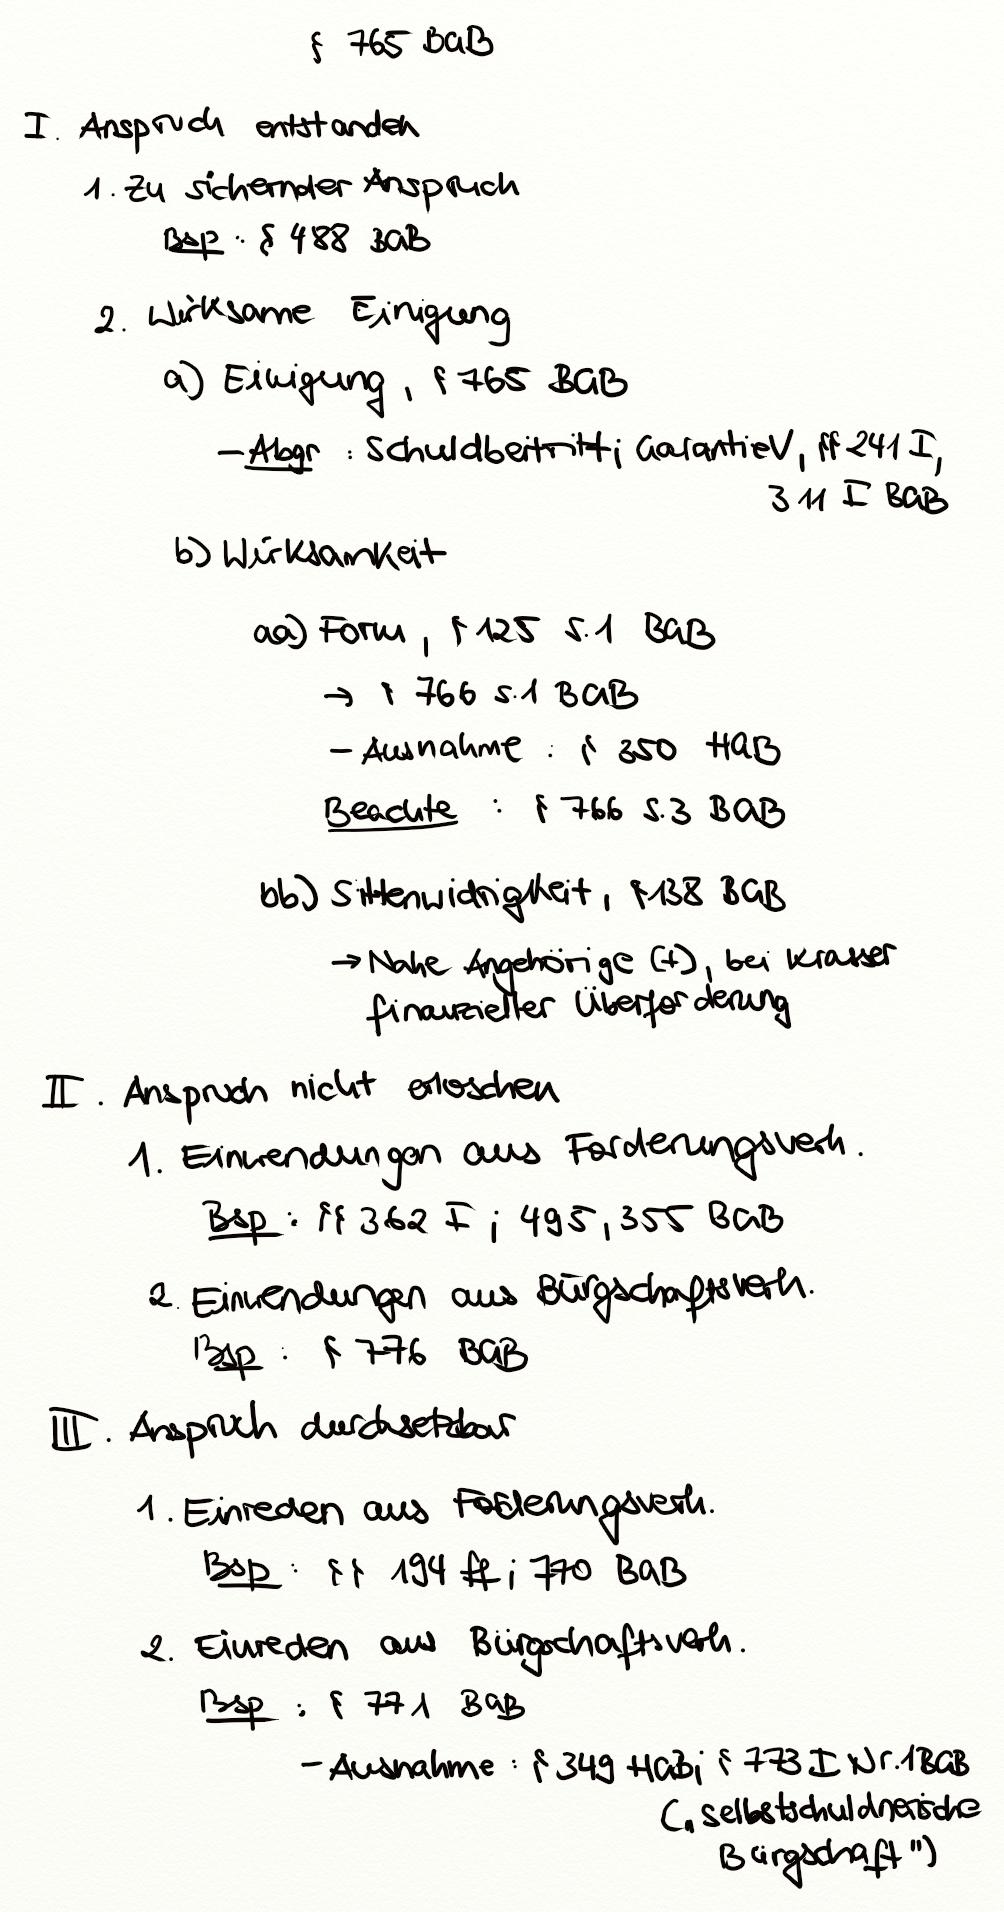 § 765 BGB
I. Anspruch entstanden
1. Zu sichernder Anspruch
Bsp : § 488 BGB
2. Wirksame Einigung
a) Einigung, § 765 BGB
- Abgr : Schuldbeitritt; GarantieV, §§ 241 I,
311 I BGB
b) Wirksamkeit
aa) Form, § 125 S.1 BGB
→ § 766 S.1 BGB
- Ausnahme : § 350 HGB
Beachte : § 766 S.3 BGB
bb) Sittenwidrigkeit, § 138 BGB
→ Nahe Angehörige (+), bei krasser
finanzieller Überforderung
II. Anspruch nicht erloschen
1. Einwendungen aus Forderungsverh.
Bsp : §§ 362 I ; 495, 355 BGB
2. Einwendungen aus Bürgschaftsverh.
Bsp : § 776 BGB
III. Anspruch durchsetzbar
1. Einreden aus Forderungsverh.
Bsp : §§ 194 ff ; 770 BGB
2. Einreden aus Bürgschaftsverh.
Bsp : § 771 BGB
- Ausnahme : § 349 HGB; § 773 I Nr.1 BGB
(„selbstschuldnerische
Bürgschaft")